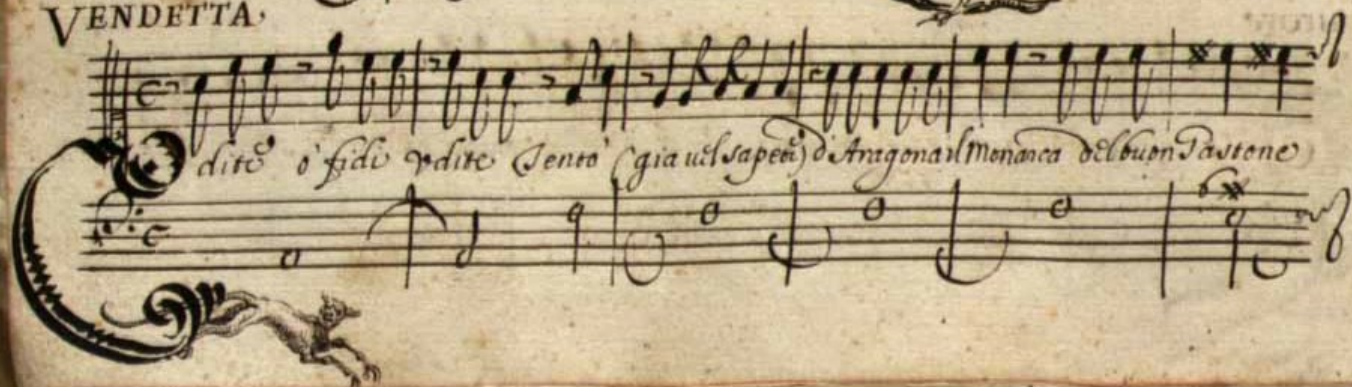 VENDETTA,
dite ò fidi vdite (gia uel sapete) d'Aragona il Monarca del buon Gastone